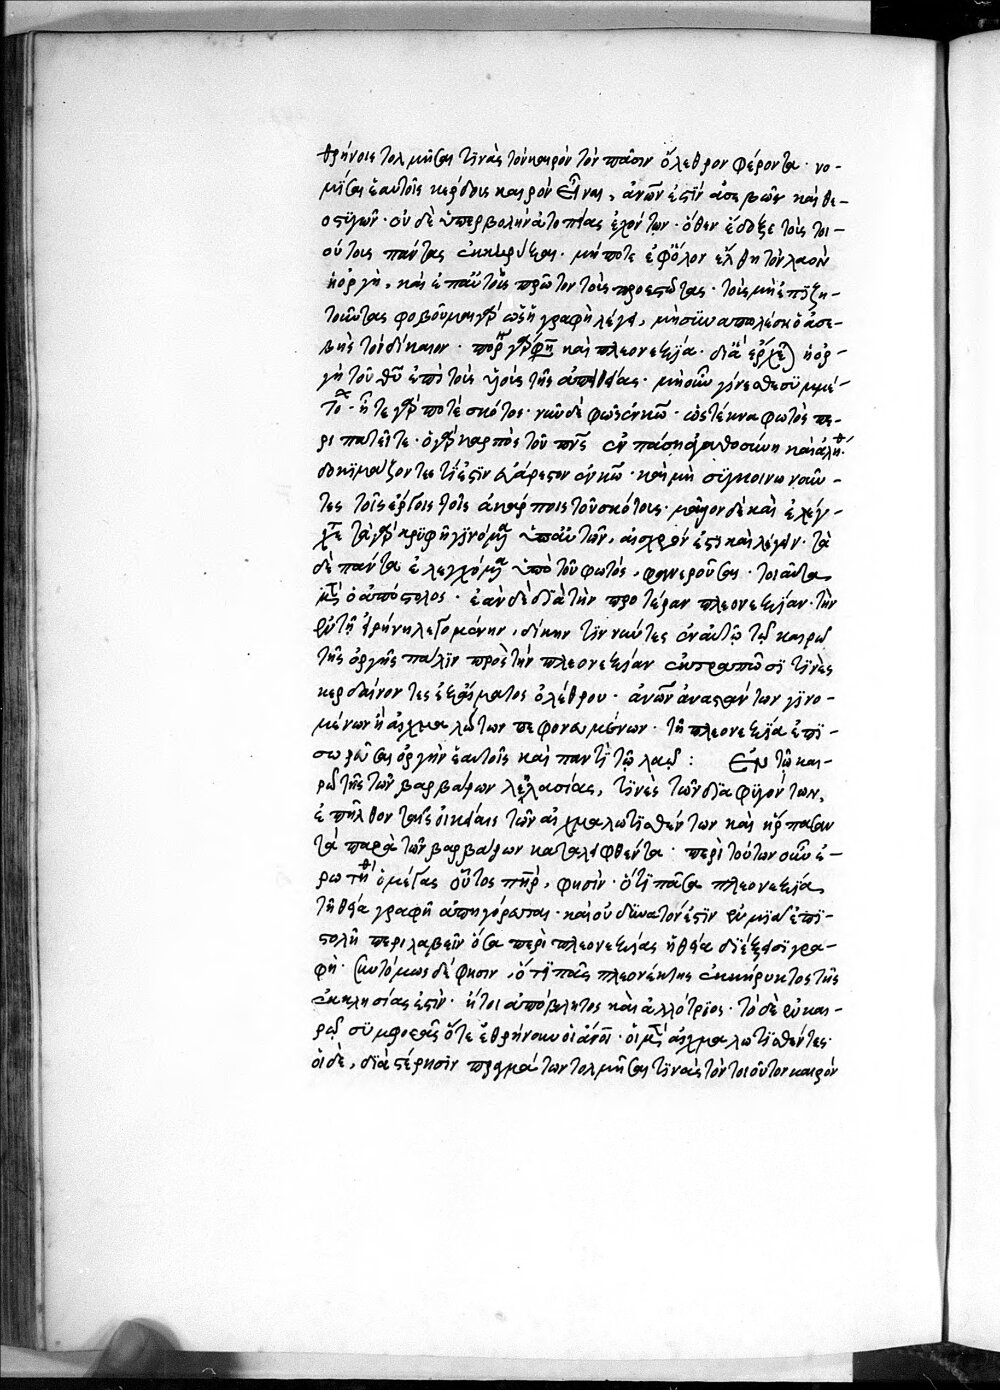 θρήνοις τολμῆσαι τινὰς τὸν καιρὸν τὸν πᾶσιν ὄλεθρον φέροντα· νο-
μίσαι ἑαυτοῖς κέρδους καιρὸν εἶναι, ἀνῶν ἐστὶν ἀσεβῶν καὶ θε-
οστυγῶν· οὐδὲ ὑπερβολὴν ἀτοπίας ἐχόντων· ὅθεν ἔδοξε τοὺς τοι-
ούτους πάντας ἐκκηρύξαι· μήποτε ἐφ' ὅλον ἔλθη τὸν λαὸν
ἡ ὀργὴ, καὶ ἐπ' αὐτοὺς πρῶτον τοὺς προεστῶτας· τοὺς μὴ ἐπιζη-
τοῦντας φοβοῦμαι γὰρ ὡς ἡ γραφὴ λέγει, μὴ συναπολέσῃ ὁ ἀσε-
βὴς τὸν δίκαιον· πορ γάρ φη καὶ πλεονεξία· δι' ἃ ἔρχεται ἡ ὀρ-
γὴ τοῦ θυ ἐπὶ τοὺς υἱοὺς τῆς ἀπειθείας· μὴ οὖν γίνεσθε συμμέ-
το· ἦτε γάρ ποτε σκότος· νῦν δὲ φῶς ἐν κω· ὡς τέκνα φωτὸς πε-
ριπατεῖτε· ὁ γὰρ καρπὸς τοῦ πνς ἐν πάσῃ ἀγαθοσύνη καὶ ἀληθ·
δοκιμάζοντες τί ἐστιν εὐάρεστον ἐν κω· καὶ μὴ συγκοινωνοῦν-
τες τοῖς ἔργοις τοῖς ἀκάρποις τοῦ σκότους· μᾶλλον δὲ καὶ ἐλέγ-
χετε τὰ γὰρ κρυφῆ γινόμενα ὑπ' αὐτῶν, αἰσχρόν ἐστι καὶ λέγειν· τὰ
δὲ πάντα ἐλεγχόμενα ὑπὸ τοῦ φωτὸς, φανεροῦται· τοιαῦτα
μὲν ὁ ἀπόστολος· ἐὰν δὲ διὰ τὴν προτέραν πλεονεξίαν· τὴν
ἐν τῆ εἰρήνη λεγομένην, δίκην τιννύντες ἐν αὐτῶ τῶ καιρῶ
τῆς ὀργῆς πάλιν πρὸς τὴν πλεονεξίαν ἐκτραπῶσί τινες
κερδαίνοντες ἐξ αἵματος ὀλέθρου· ἀνῶν ἀναστάντων γινο-
μένων ἢ αἰχμαλώτων πεφονευμένων· τῆ πλεονεξία ἐπι-
σωρεῦσαι ὀργὴν ἑαυτοῖς καὶ παντὶ τῶ λαῶ: Ἐν τῶ και-
ρῶ τῆς τῶν βαρβάρων λεηλασίας, τινὲς τῶν διαφυγόντων,
ἐπῆλθον ταῖς οἰκίαις τῶν αἰχμαλωτισθέντων καὶ ἥρπασαν
τὰ παρὰ τῶν βαρβάρων καταλειφθέντα· περὶ τούτων οὖν ἐ-
ρωτηθεὶς ὁ μέγας οὗτος πηρ, φησὶν· ὅτι πᾶσα πλεονεξία,
τῆ θεία γραφῆ ἀπηγόρευται· καὶ οὐ δυνατόν ἐστιν ἐν μιᾶ ἐπι-
στολῆ περιλαβεῖν ὅσα περὶ πλεονεξίας ἡ θεία διέξεισι γρα-
φὴ· συντόμως δέ φησιν, ὅτι πᾶς πλεονέκτης ἐκκήρυκτος τῆς
ἐκκλησίας ἐστὶν· ἤτοι ἀπόβλητος καὶ ἀλλότριος· τὸ δὲ ἐν και-
ρῶ συμφορᾶς ὅτε ἐθρήνουν οἱ ἄνοι· οἱ μὲν αἰχμαλωτισθέντες·
οἱ δὲ, διὰ στέρησιν πραγμάτων τολμῆσαι τινὰς τὸν τοιοῦτον καιρὸν